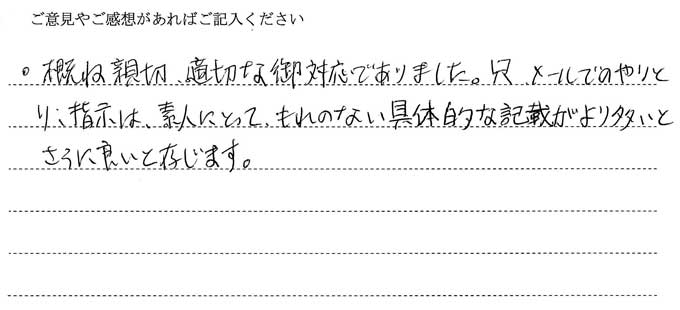 ご意見やご感想があればご記入ください
。概ね親切、適切な御対応でありました。只、メールでのやりと
り、指示は、素人にとって、もれのない具体的な記載がより多いと
さらに良いと存じます。